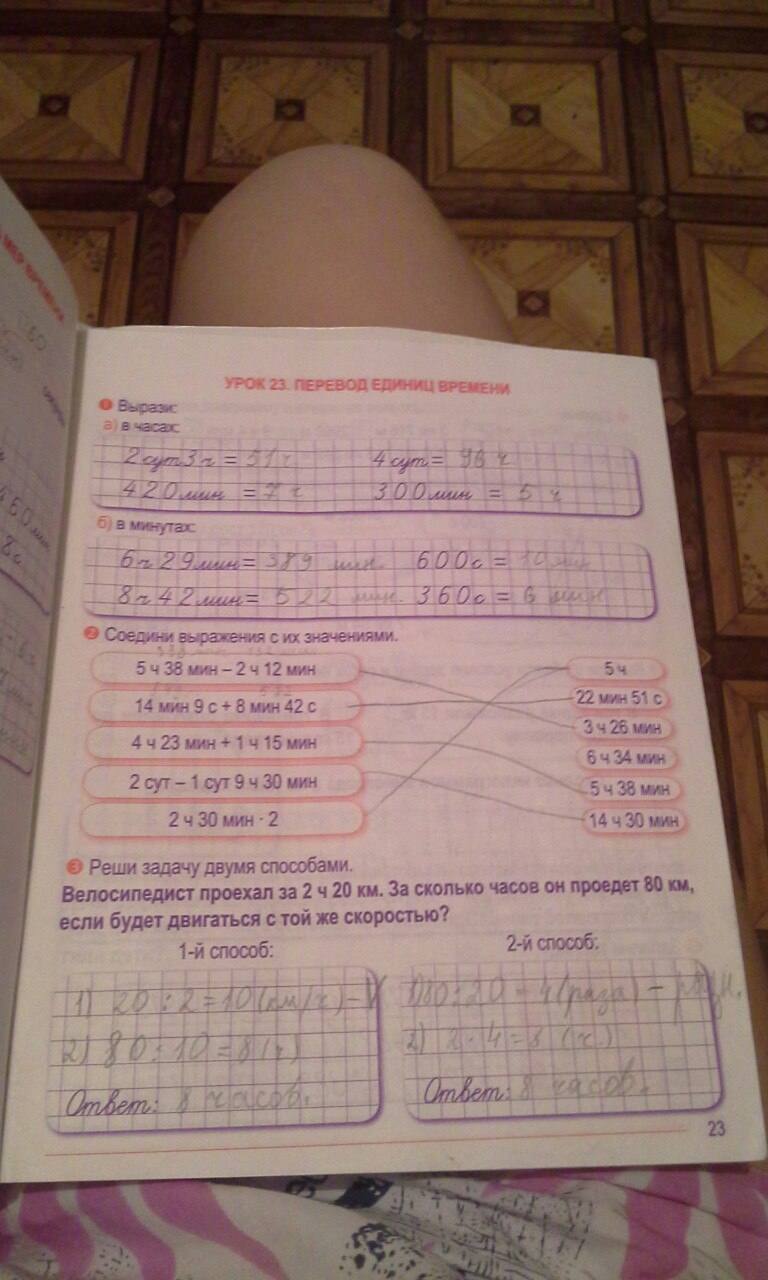 МЕР ВРЕМЕНИ
УРОК 23. ПЕРЕВОД ЕДИНИЦ ВРЕМЕНИ
1 Вырази:
а) в часах:
2сут3ч = 51 ч 4сут = 96 ч
420мин = 7 ч 300мин = 5 ч
б) в минутах:
6ч 29мин = 389 мин. 600с = 10 мин
8ч 42мин = 522 мин. 360с = 6 мин
2 Соедини выражения с их значениями.
5 ч 38 мин – 2 ч 12 мин
14 мин 9 с + 8 мин 42 с
4 ч 23 мин + 1 ч 15 мин
2 сут – 1 сут 9 ч 30 мин
2 ч 30 мин · 2
5 ч
22 мин 51 с
3 ч 26 мин
6 ч 34 мин
5 ч 38 мин
14 ч 30 мин
3 Реши задачу двумя способами.
Велосипедист проехал за 2 ч 20 км. За сколько часов он проедет 80 км,
если будет двигаться с той же скоростью?
1-й способ:
1) 20 : 2 = 10 (км/ч) – V
2) 80 : 10 = 8 (ч)
Ответ: 8 часов.
2-й способ:
1) 80 : 20 = 4 (раза) –
2) 2 · 4 = 8 (ч.)
Ответ: 8 часов.
23